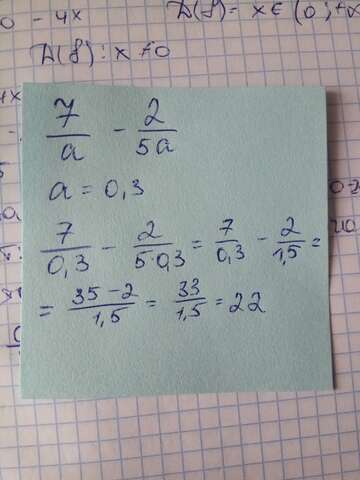 0 - 4x
D(f) = x ∈ (0; +∞
D(f): x ≠ 0
7/a - 2/5a
a = 0,3
7/0,3 - 2/5·0,3 = 7/0,3 - 2/1,5 =
= 35-2/1,5 = 33/1,5 = 22